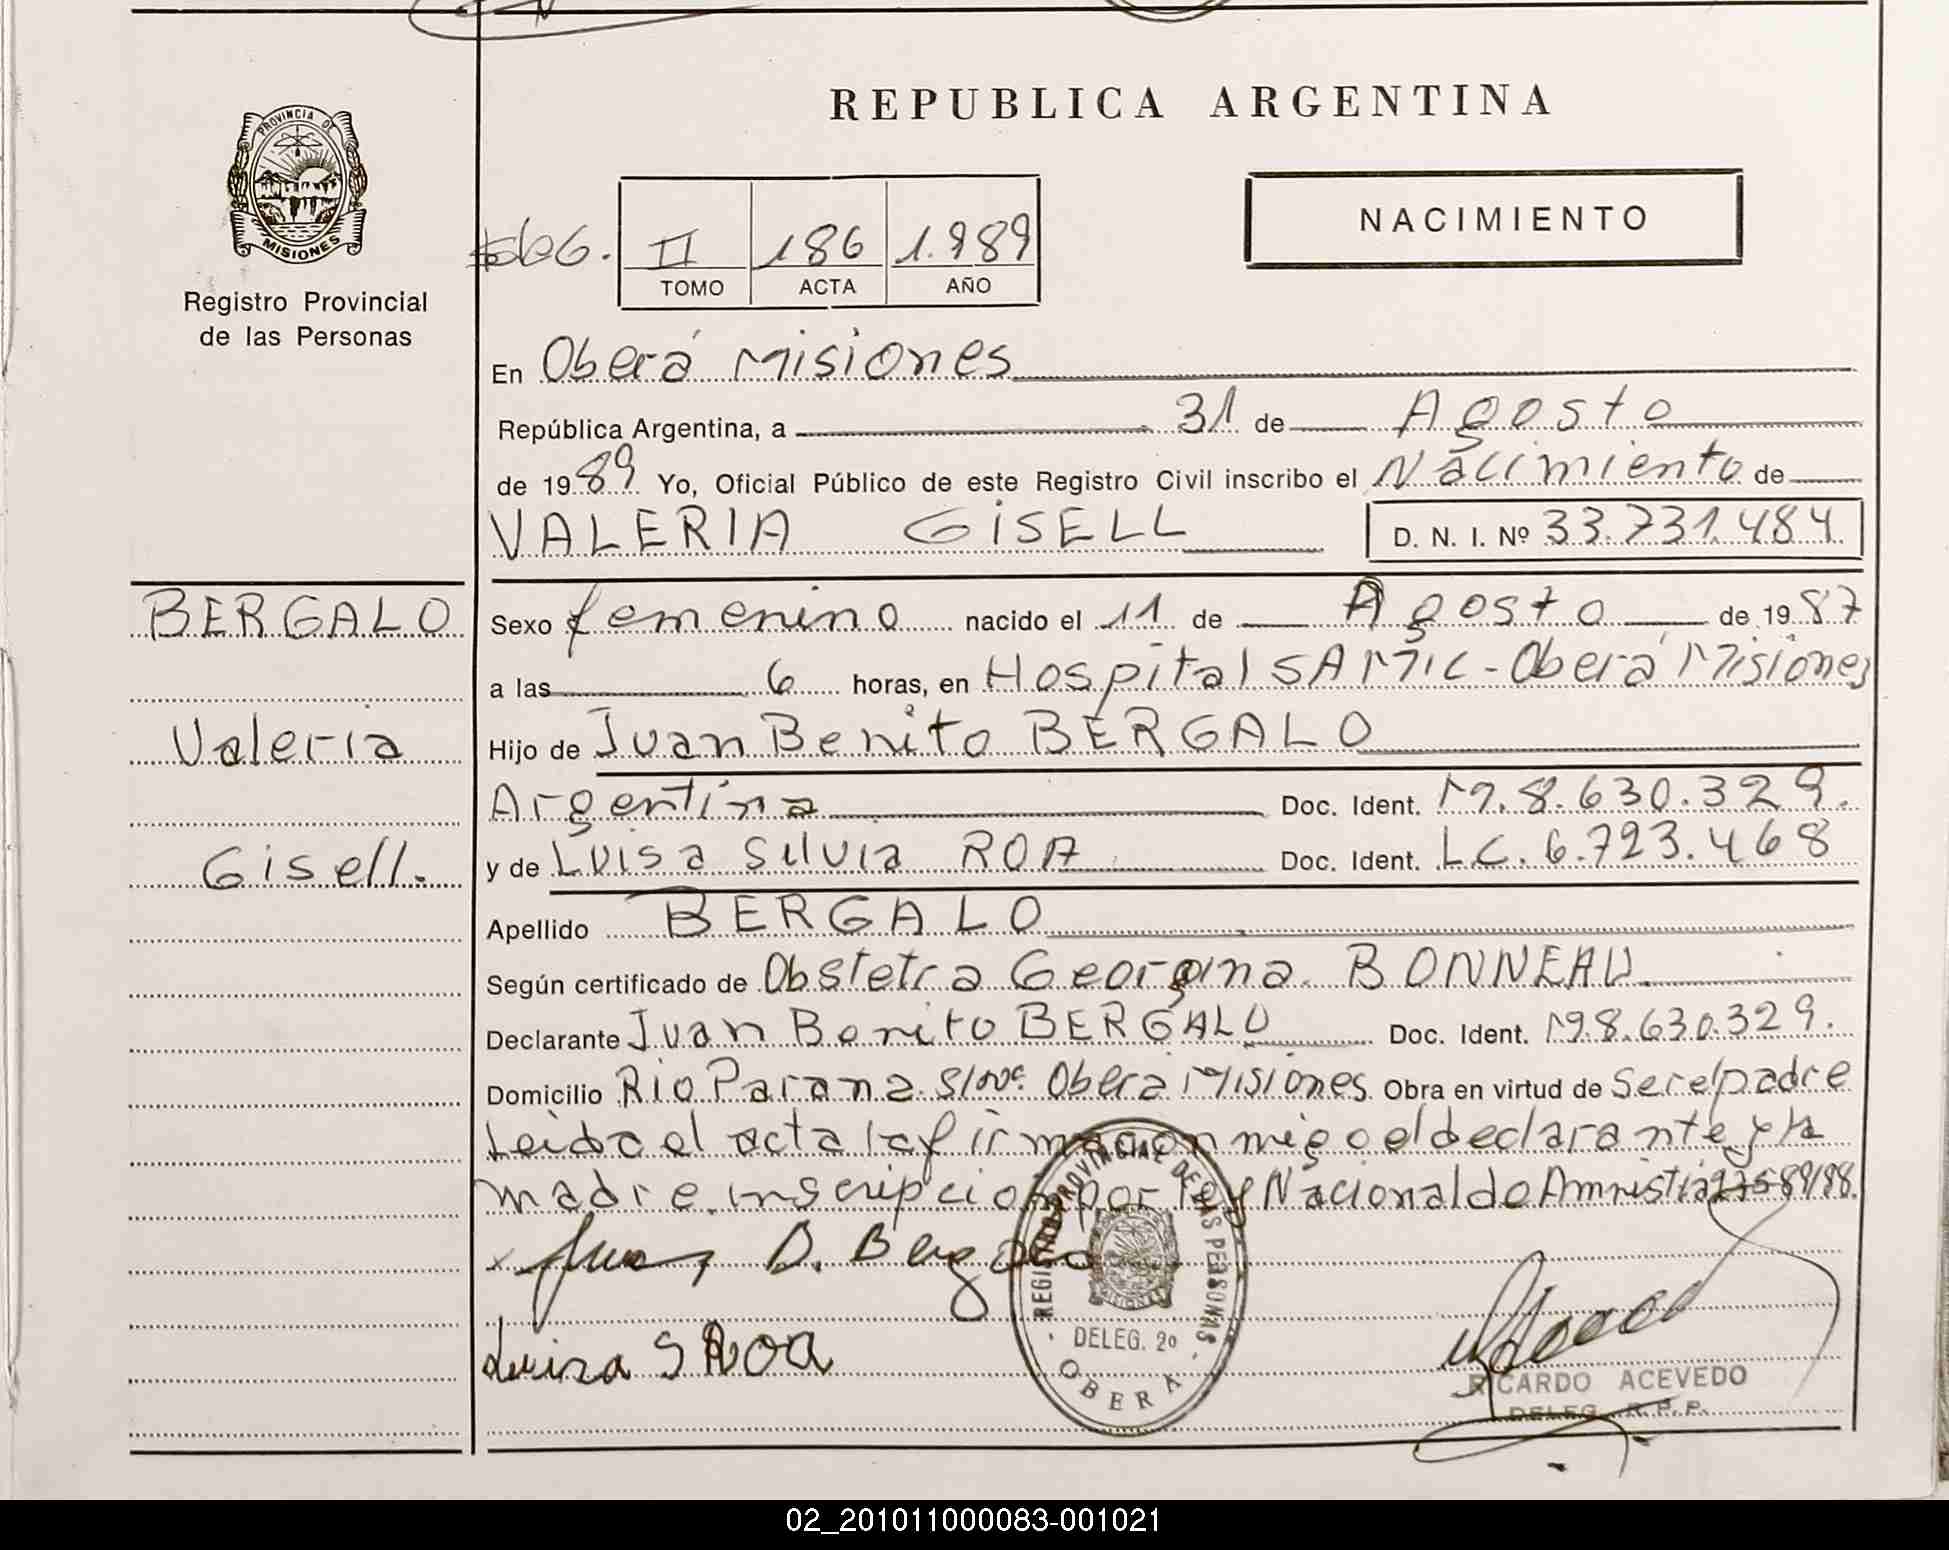 REPUBLICA ARGENTINA
PROVINCIA DE
MISIONES
Registro Provincial
de las Personas
NACIMIENTO
II 186 1.989
TOMO ACTA AÑO
En Oberá Misiones
República Argentina, a 31 de Agosto
de 1989 Yo, Oficial Público de este Registro Civil inscribo el Nacimiento de
VALERIA GISELL D. N. I. Nº 33.731.484
BERGALO
Valeria
Gisell.
Sexo femenino nacido el 11 de Agosto de 1987
a las 6 horas, en Hospital SAMIC - Oberá Misiones
Hijo de Juan Benito BERGALO
Argentina Doc. Ident. M. 8.630.329.
y de Luisa Silvia ROA Doc. Ident. L.C. 6.723.468
Apellido BERGALO
Según certificado de Obstetra Georgina BONNEAU.
Declarante Juan Benito BERGALO Doc. Ident. M 8.630.329.
Domicilio Rio Parana S/Nº Obera Misiones Obra en virtud de Ser el padre
Leida el acta la firma con migo el declarante y la
madre. inscripcion por Ley Nacional de Amnistia
Juan B. Bergalo
Luisa S Roa
REGISTRO PROVINCIAL DE LAS PERSONAS
MISIONES
DELEG. 2º
OBERA
RICARDO ACEVEDO
DELEG. R.P.P.
02_201011000083-001021